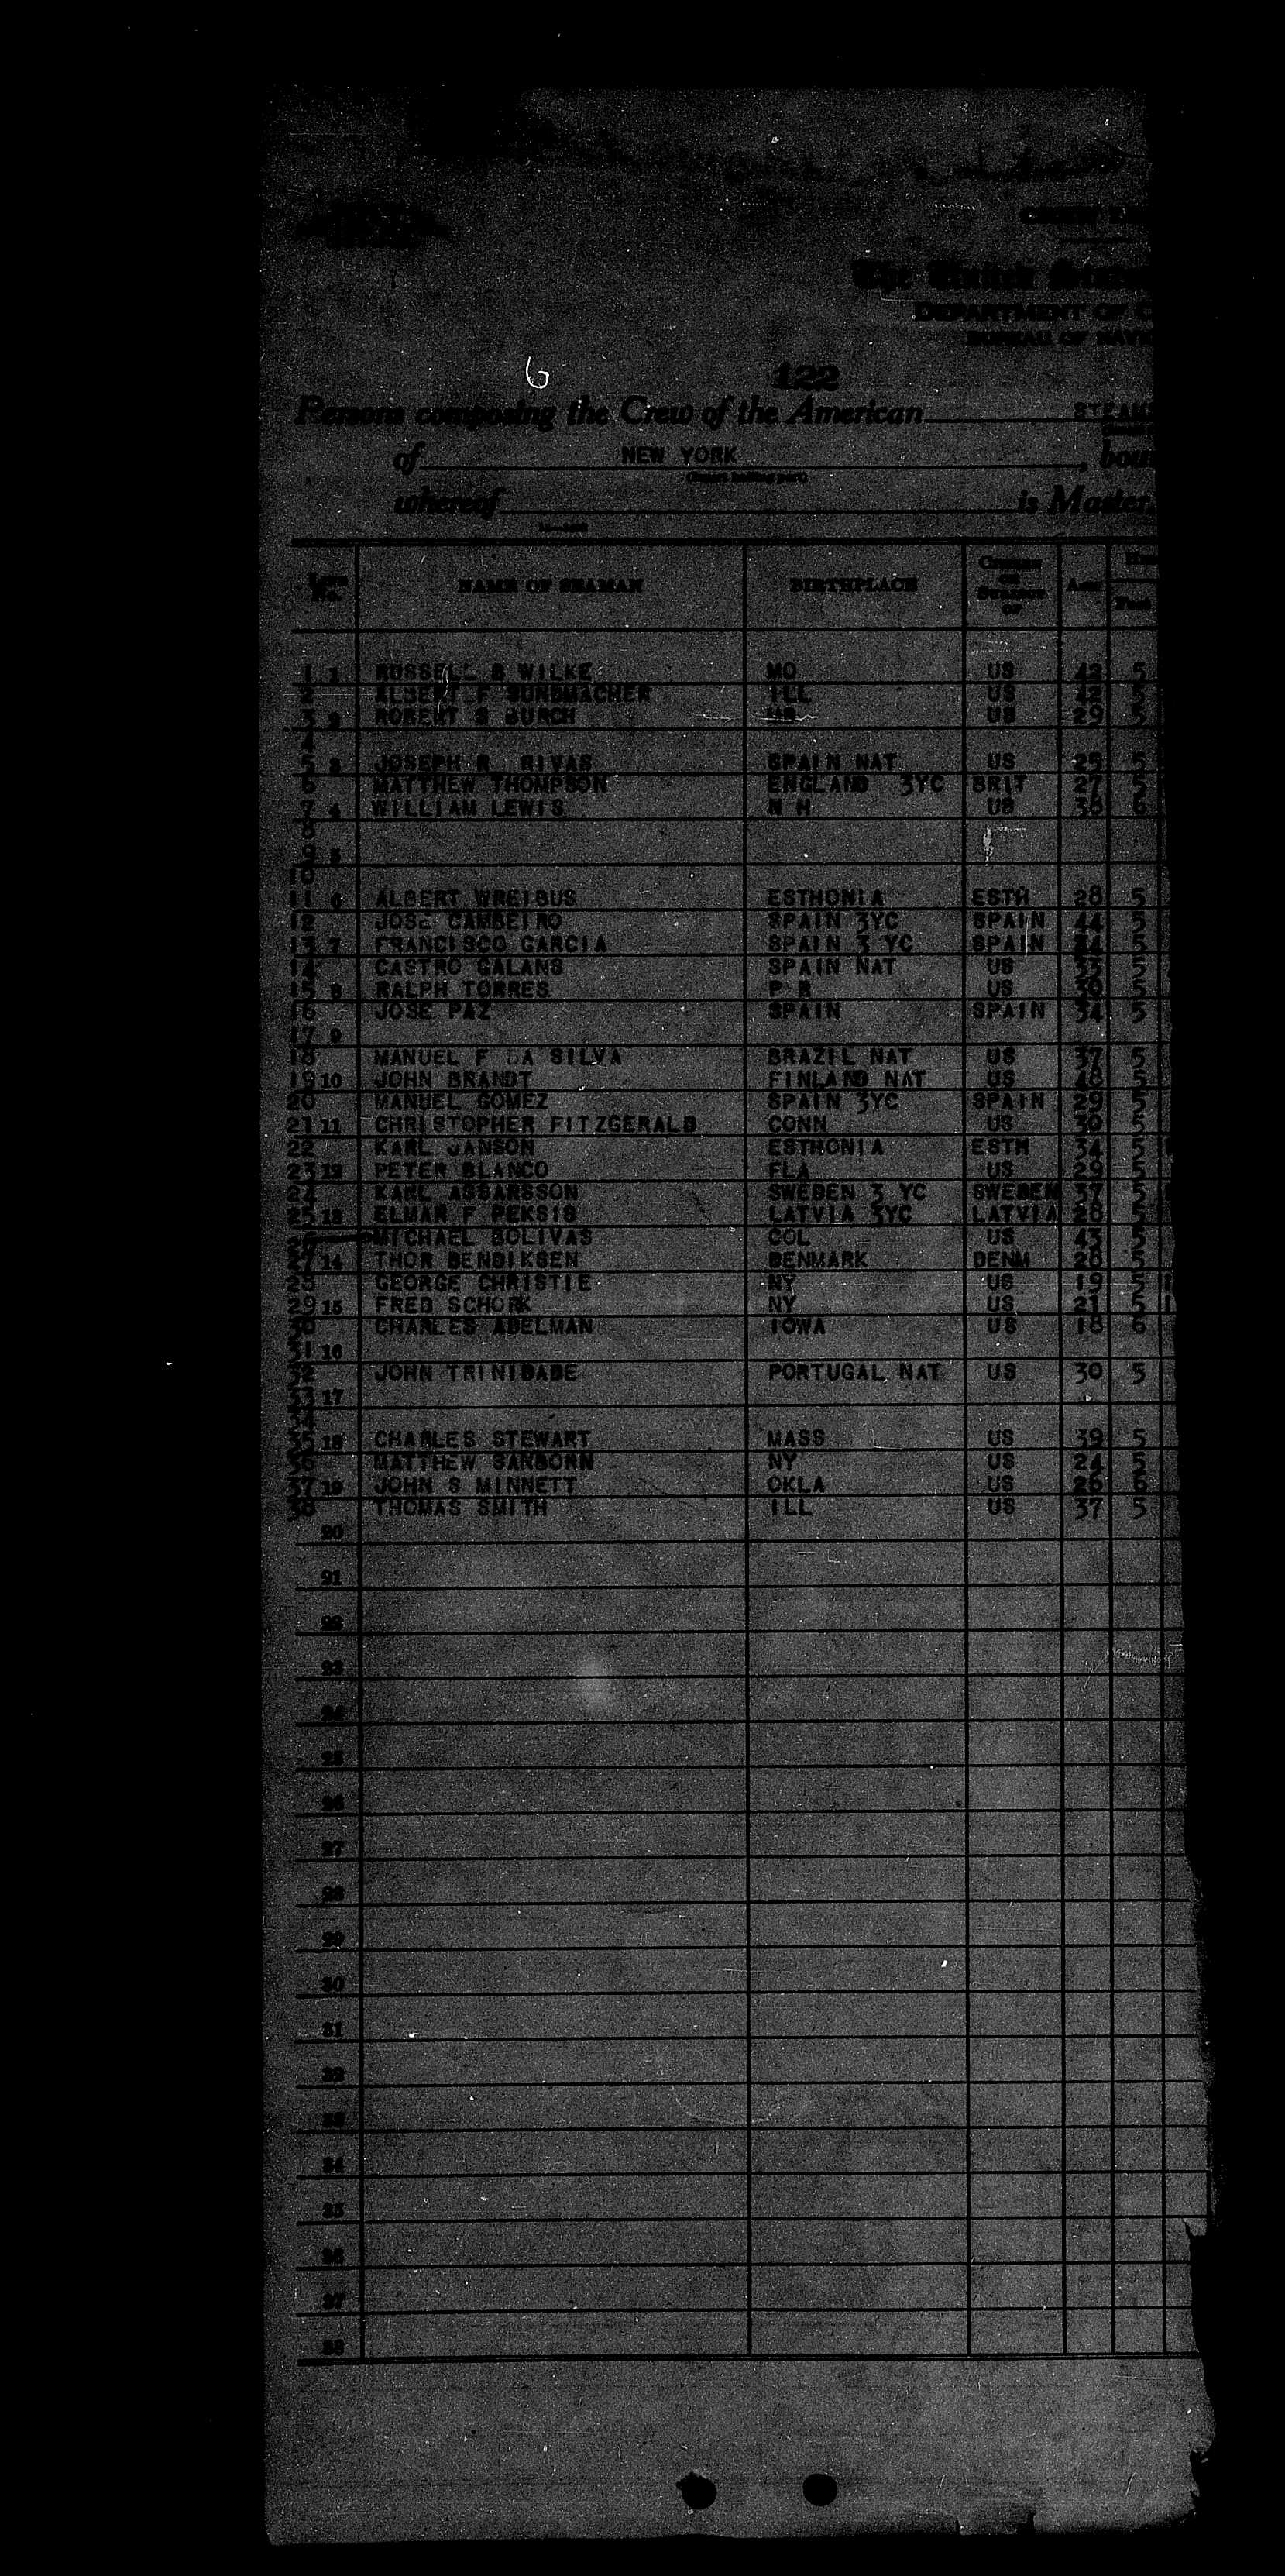 CREW
The United States
DEPARTMENT OF C
BUREAU OF NAVI
6
122
Persons composing the Crew of the American STEAM
of NEW YORK , boun
whereof is Master
Line No. NAME OF SEAMAN BIRTHPLACE CITIZEN OR SUBJECT OF AGE Feet
1 1 RUSSELL B WILKE MO US 42 5
2 ALBERT F SUNDMACHER ILL US 42 5
3 2 ROBERT S BURCH US 29 5
4
5 3 JOSEPH R RIVAS SPAIN NAT US 25 5
6 MATTHEW THOMPSON ENGLAND 3YC BRIT 27 5
7 4 WILLIAM LEWIS N H US 38 6
8
9 5
10
11 6 ALBERT WREIBUS ESTHONIA ESTH 28 5
12 JOSE CAMBEIRO SPAIN 3YC SPAIN 44 5
13 7 FRANCISCO GARCIA SPAIN 3 YC SPAIN 5
14 CASTRO GALANS SPAIN NAT US 33 5
15 8 RALPH TORRES P R US 5
16 JOSE PAZ SPAIN SPAIN 34 5
17 9
18 MANUEL F DA SILVA BRAZIL NAT US 37 5
19 10 JOHN BRANDT FINLAND NAT US 5
20 MANUEL GOMEZ SPAIN 3YC SPAIN 29 5
21 11 CHRISTOPHER FITZGERALD CONN US 30 5
22 KARL JANSON ESTHONIA ESTH 34 5
23 12 PETER BLANCO FLA US 29 5
24 KARL ASSARSSON SWEDEN 3 YC SWEDEN 37 5
25 13 ELMAR F PEKSIS LATVIA 3YC LATVIA 28 5
26 MICHAEL BOLIVAS COL US 43 5
27 14 THOR BENDIKSEN DENMARK DENM 28 5
28 GEORGE CHRISTIE NY US 19 5
29 15 FRED SCHORK NY US 21 5
30 CHARLES ADELMAN IOWA US 18 6
31 16
32 JOHN TRINIDADE PORTUGAL NAT US 30 5
33 17
34
35 18 CHARLES STEWART MASS US 39 5
36 MATTHEW SANBORN NY US 24 5
37 19 JOHN S MINNETT OKLA US 26
38 THOMAS SMITH ILL US 37 5
20
21
22
23
24
25
26
27
28
29
30
31
32
33
34
35
36
37
38